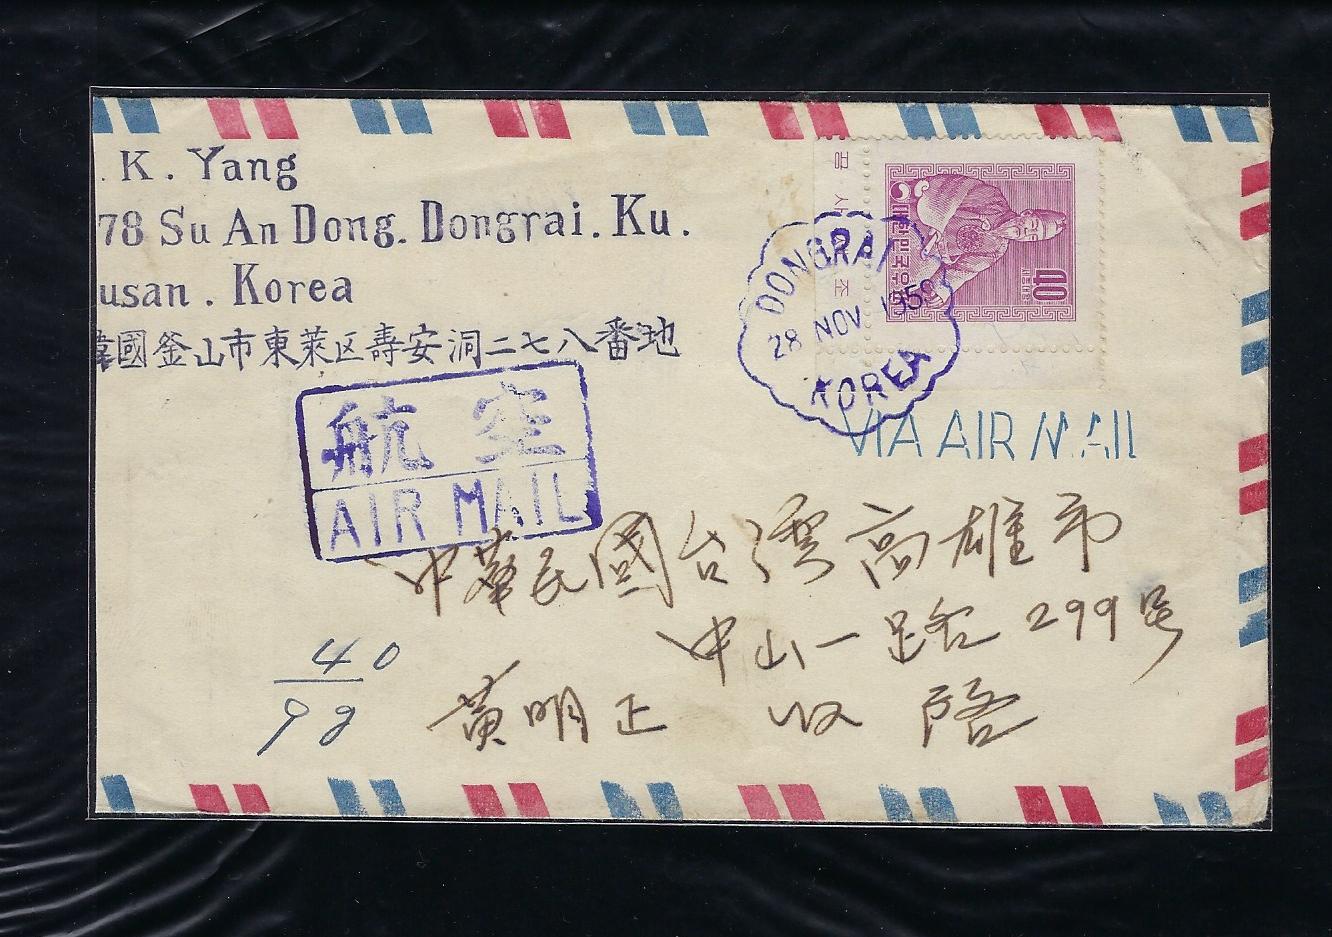 . K . Yang
78 Su An Dong. Dongrai. Ku.
usan . Korea
韓國釜山市東萊区壽安洞二七八番地
대한민국우표
40
DONGRAI
28 NOV 1959
KOREA
VIA AIR MAIL
航空
AIR MAIL
中華民國台湾高雄市
中山一路299号
黃明正 收 啓
40
98